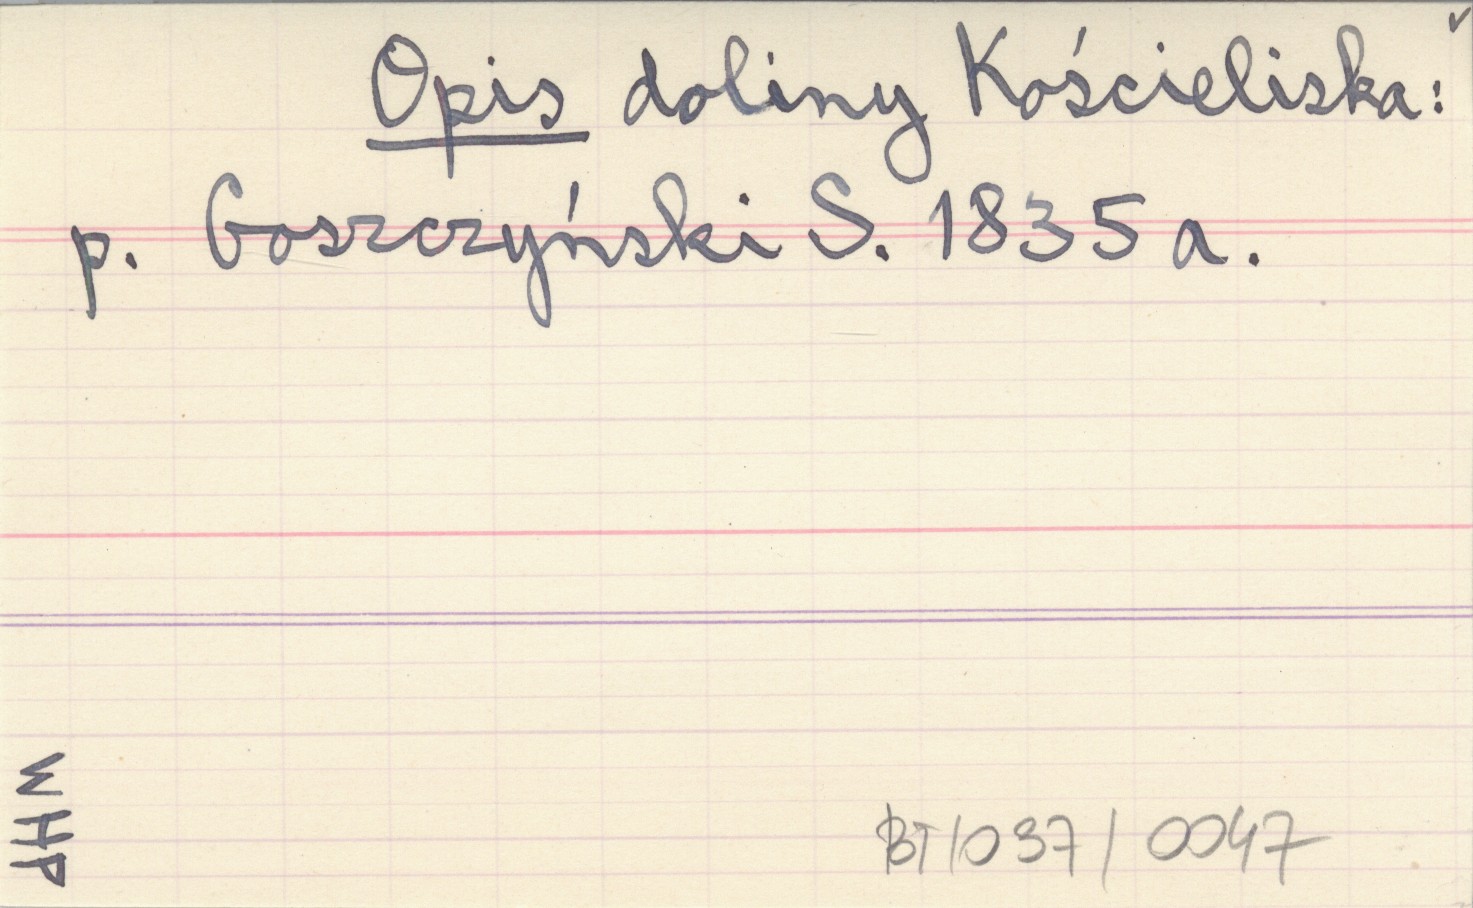 Opis doliny Kościeliska:
p. Goszczyński S. 1835 a.
WHP
BT/037/0047